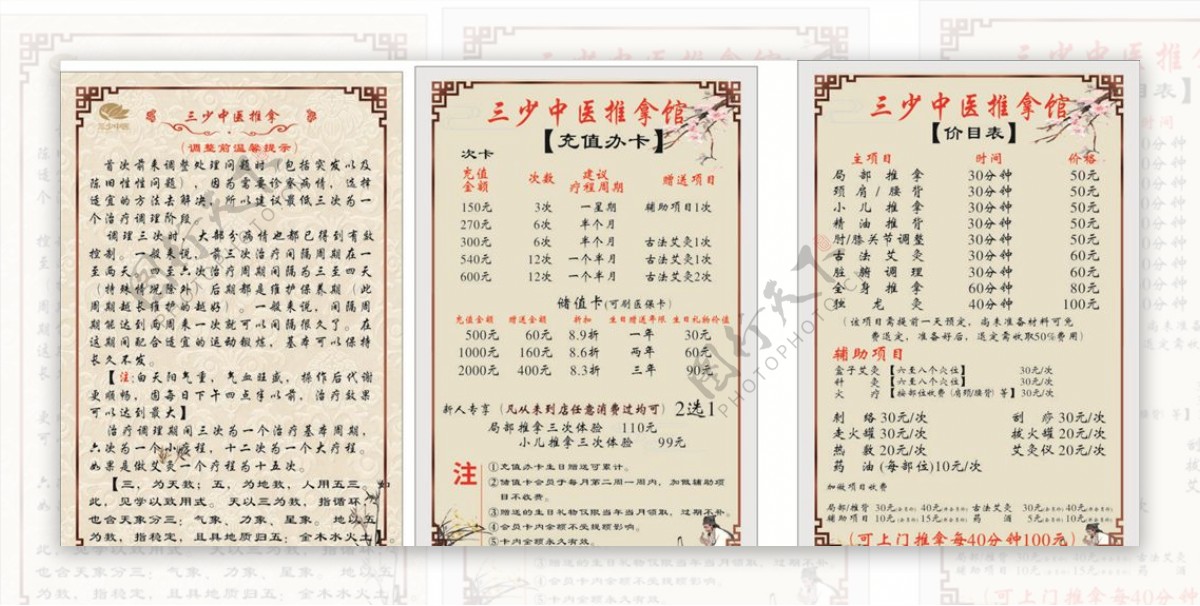 三少中医推拿
(调整前温馨提示)
首次前来调整处理问题时(包括突发以及
陈旧性性问题),因为需要诊察病情,选择
适宜的方法去解决,所以建议最低三次为一
个治疗调理阶段。
调理三次时,大部分病情也都已得到有效
控制。一般来说,前三次治疗间隔周期在一
至两天,四至六次治疗周期间隔为三至四天
(特殊情况除外),后期都是维护保养期(此
周期越长维护的越好)。一般来说,间隔周
期能达到两周来一次就可以间隔很久了。在
这期间配合适宜的运动锻炼,基本可以保持
长久不发。
【注:白天阳气重,气血旺盛,操作后代谢
更顺畅,因每日下午四点事以前,治疗效果
可以达到最大】
治疗调理期间三次为一个治疗基本周期,
六次为一个小疗程,十二次为一个大疗程。
如果是做艾灸一个疗程为十五次。
【三,为天数;五,为地数,人用五三,如
此,见学以致用式。天以三为数,指循环,
也含天象分三:气象、力象、星象。地以五
为数,指稳定,且具地质归五:金木水火土
三少中医推拿馆
【充值办卡】
次卡
充值金额 次数 建议疗程周期 赠送项目
150元 3次 一星期 辅助项目1次
270元 6次 半个月
300元 6次 半个月 古法艾灸1次
540元 12次 一个半月 古法艾灸1次
600元 12次 一个半月 古法艾灸2次
储值卡(可刷医保卡)
充值金额 赠送金额 折扣 生日赠送年限 生日礼物价值
500元 60元 8.9折 一年 30元
1000元 160元 8.6折 两年 60元
2000元 400元 8.3折 三年 90元
新人专享(凡从未到店任意消费过均可)2选1
局部推拿三次体验 110元
小儿推拿三次体验 99元
注
①充值办卡生日赠送可累计。
②储值卡会员于每月第二周一周内,加做辅助项
目不收费。
③赠送的生日礼物仅限当年当月领取,过期不补。
④会员卡内余额不受残额影响。
⑤卡内余额永久有效。
三少中医推拿馆
【价目表】
主项目 时间 价格
局部推拿 30分钟 50元
颈肩/腰背 30分钟 50元
小儿推拿 30分钟 50元
精油推背 30分钟 50元
肘/膝关节调整 30分钟 50元
古法艾灸 30分钟 60元
脏腑调理 30分钟 60元
全身推拿 60分钟 80元
独龙灸 40分钟 100元
(该项目需提前一天预定,尚未准备材料可免
费退定,准备好后,退定需收取50%费用)
辅助项目
盒子艾灸【六至八个穴位】 30元/次
针灸【六至八个穴位】 30元/次
火疗【按部位收费(肩颈/腰背)等】 30元/次
刺络30元/次 刮痧30元/次
走火罐30元/次 拔火罐20元/次
热敷20元/次 艾灸仪20元/次
药油(每部位)10元/次
加做项目收费
局部/推背 30元 40元 古法艾灸 30元 40元
辅助项目 10元 15元 药酒 5元 10元
(可上门推拿每40分钟100元)